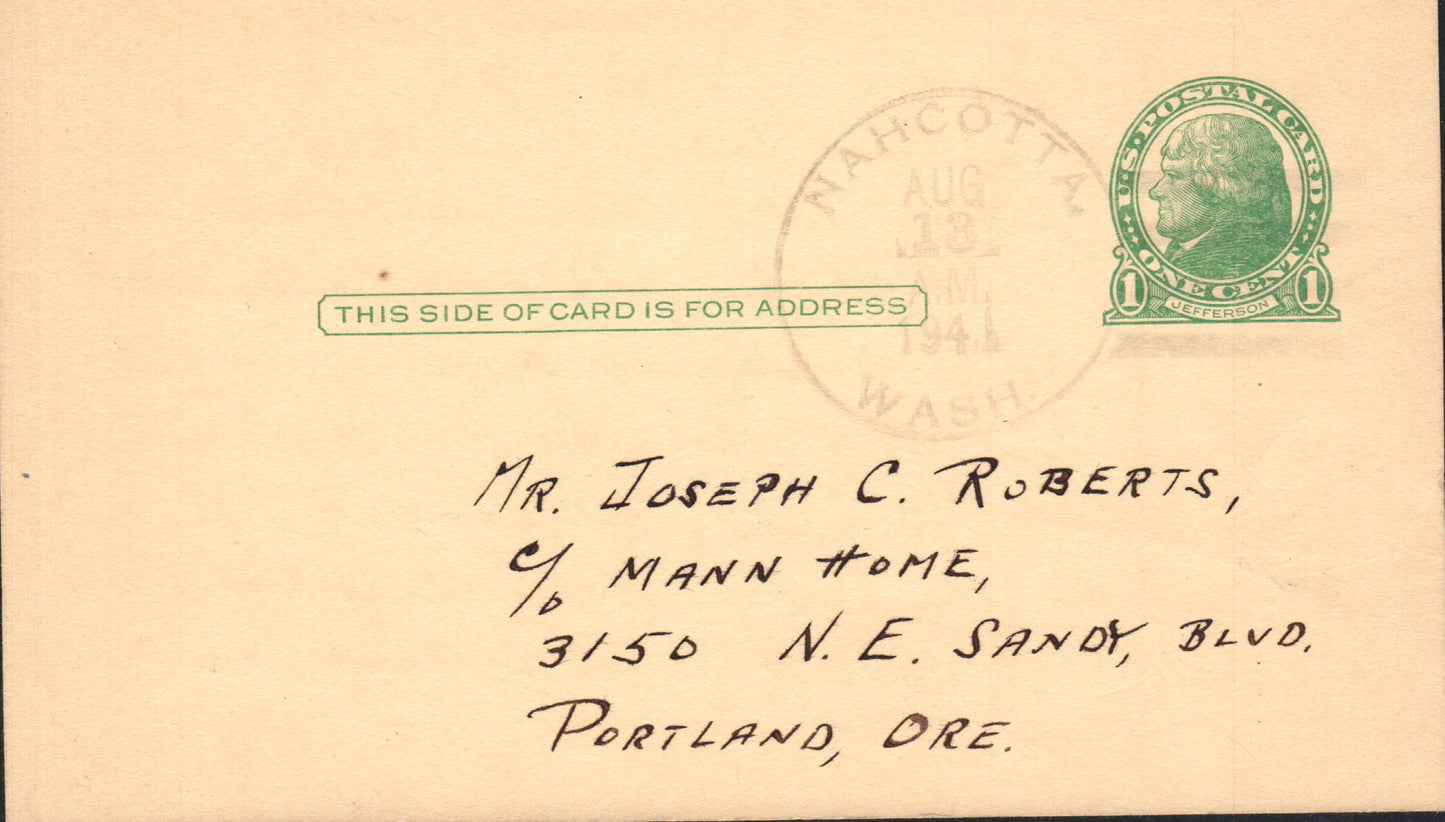 NAHCOTTA.
AUG
13
A.M.
1941
WASH.
U.S. POSTAL CARD
ONE CENT
1 JEFFERSON 1
THIS SIDE OF CARD IS FOR ADDRESS
MR. JOSEPH C. ROBERTS,
c/o MANN HOME,
3150 N. E. SANDY, BLVD.
PORTLAND, ORE.